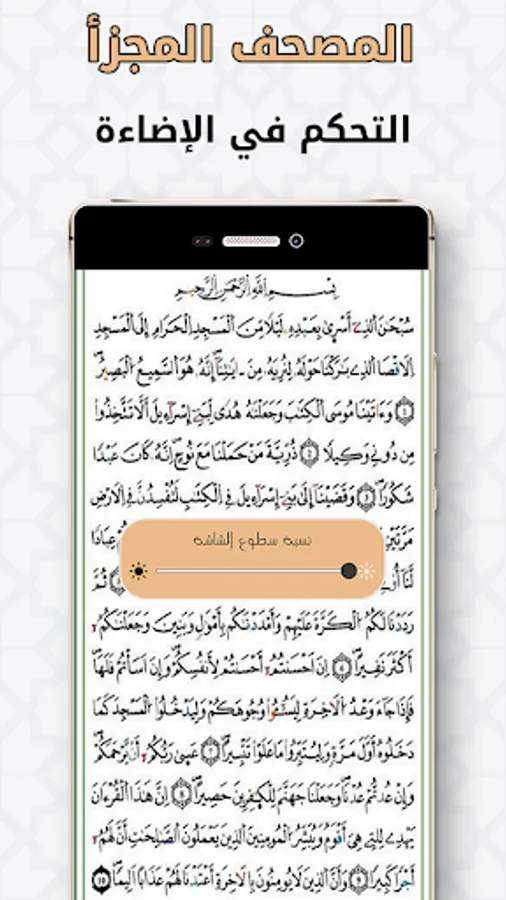 المصحف المجزأ
التحكم في الإضاءة
بِسْمِ اللَّهِ الرَّحْمَٰنِ الرَّحِيمِ
سُبْحَٰنَ اَلذِےٓ أَسْر۪يٰ بِعَبْدِهِۦ لَيْلاٗ مِّنَ اَلْمَسْجِدِ اِلْحَرَامِ إِلَي اَلْمَسْجِدِ
اِلَاقْصَا اَلذِے بَٰرَكْنَا حَوْلَهُۥ لِنُرِيَهُۥ مِنَ اٰيَٰتِنَآۖ إِنَّهُۥ هُوَ اَلسَّمِيعُ اُلْبَصِيرُۖ
١ وَءَاتَيْنَا مُوسَي اَلْكِتَٰبَ وَجَعَلْنَٰهُ هُديٗ لِّبَنِےٓ إِسْرَآءِيلَ أَلَّا تَتَّخِذُواْ
مِن دُونِے وَكِيلاٗ ٢ ذُرِّيَّةَ مَنْ حَمَلْنَا مَعَ نُوحٍۖ اِنَّهُۥ كَانَ عَبْداٗ
شَكُوراٗۖ ٣ وَقَضَيْنَآ إِلَيٰ بَنِےٓ إِسْرَآءِيلَ فِے اِلْكِتَٰبِ لَتُفْسِدُنَّ فِے اِلَارْضِ
مَرَّتَيْنِ
عِبَاداٗ
نسبة سطوع الشاشة
لَّنَآ
ثُمَّ
رَدَدْنَا لَكُمُ اُلْكَرَّةَ عَلَيْهِمْ وَأَمْدَدْنَٰكُم بِأَمْوَٰلٖ وَبَنِينَ وَجَعَلْنَٰكُمُۥٓ
أَكْثَرَ نَفِيراًۖ ٦ اِنَ اَحْسَنتُمُۥٓ أَحْسَنتُمْ لِأَنفُسِكُمْۖ وَإِنَ اَسَأْتُمْ فَلَهَاۖ
فَإِذَا جَآءَ وَعْدُ اُلَاخِرَةِ لِيَسُـُٔواْ وُجُوهَكُمْ وَلِيَدْخُلُواْ اُلْمَسْجِدَ كَمَا
دَخَلُوهُ أَوَّلَ مَرَّةٖ وَلِيُتَبِّرُواْ مَا عَلَوْاْ تَتْبِيراًۖ ٧ عَسَيٰ رَبُّكُمُۥٓ أَنْ يَّرْحَمَكُمْۖ
وَإِنْ عُدتُّمْ عُدْنَاۖ وَجَعَلْنَا جَهَنَّمَ لِلْكٰ۪فِرِينَ حَصِيراًۖ ٨ اِنَّ هَٰذَا اَلْقُرْءَانَ
يَهْدِے لِلتِے هِيَ أَقْوَمُ وَيُبَشِّرُ اُلْمُومِنِينَ اَلذِينَ يَعْمَلُونَ اَلصَّٰلِحَٰتِ أَنَّ لَهُمُۥٓ
أَجْراٗ كَبِيراٗ ٩ وَأَنَّ اَلذِينَ لَا يُومِنُونَ بِالَاخِرَةِ أَعْتَدْنَا لَهُمْ عَذَاباً اَلِيماٗۖ 10